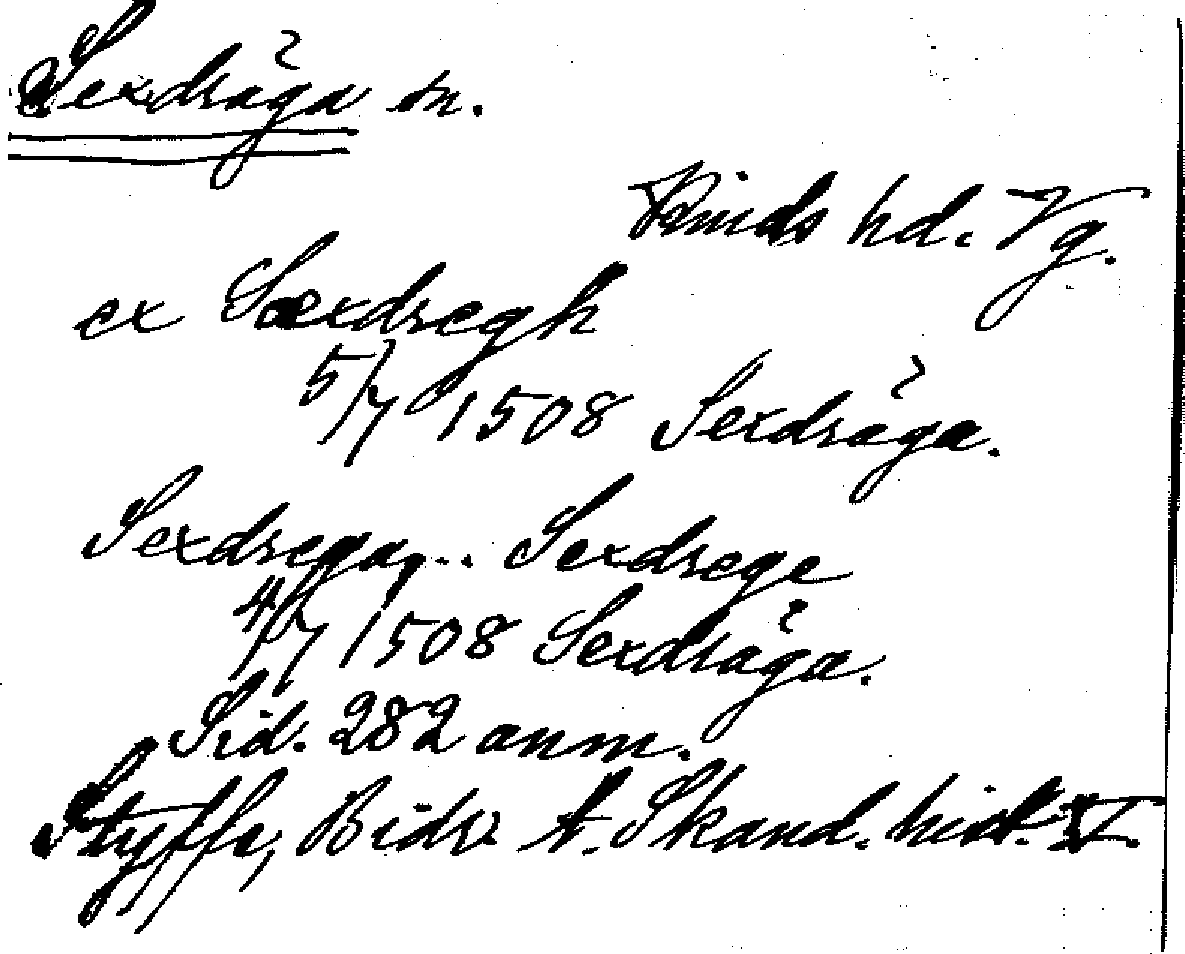 Sexdräga sn.
Kinds hd. Vg.
ex Sæxdregh
5/7 1508 Sexdräga.
Sexdrega, .. Sexdrege
4/7 1508 Sexdräga.
Sid. 282 anm.
Styffe, Bidr. t. Skand. hist. V.